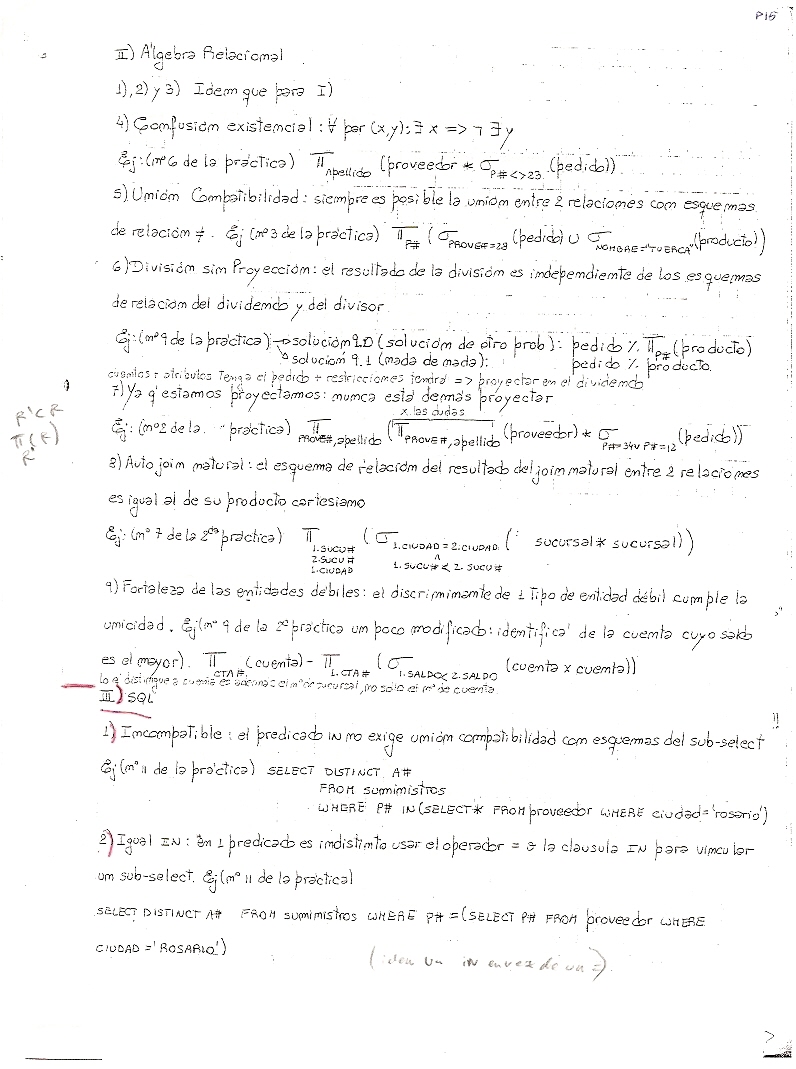 P15
II) Algebra Relacional
1), 2) y 3) Idem que para I)
4) Confusión existencial : ∀ par (x,y): ∃ x => ¬ ∃ y
Ej: (nº 6 de la práctica) Π Apellido (proveedor * σ P#<>23 (pedido))
5) Unión Compatibilidad : siempre es posible la unión entre 2 relaciones con esquemas
de relación ≠. Ej (nº 3 de la práctica) Π P# (σ PROVE#=23 (pedido) ∪ σ NOMBRE="TUERCA" (producto))
6) División sin Proyección : el resultado de la división es independiente de los esquemas
de relación del dividendo y del divisor
Ej: (nº 9 de la práctica) → solución 9.0 (solución de otro prob) : pedido % Π P# (producto)
→ solución 9.1 (nada de nada) : pedido % producto.
cuantos + atributos tenga el pedido + restricciones tendrá => proyectar en el dividendo
7) Ya q' estamos proyectamos : nunca está demás proyectar
x las dudas
R' ⊂ R
Π (R)
R'
Ej: (nº 2 de la práctica) Π PROVE#, apellido (Π PROVE#, apellido (proveedor) * σ P#=34 v P#=12 (pedido))
8) Auto join natural : el esquema de relación del resultado del join natural entre 2 relaciones
es igual al de su producto cartesiano
Ej: (nº 7 de la 2da práctica) Π 1.SUCU# 2.SUCU# 1.CIUDAD (σ 1.CIUDAD = 2.CIUDAD ∧ 1.SUCU# < 2.SUCU# (sucursal * sucursal))
9) Fortaleza de las entidades débiles : el discriminante de 1 tipo de entidad débil cumple la
unicidad. Ej (nº 9 de la 2º práctica un poco modificado : identifica' de la cuenta cuyo saldo
es el mayor). Π CTA# (cuenta) - Π 1.CTA# (σ 1.SALDO < 2.SALDO (cuenta x cuenta))
lo q' distingue a cuenta es además el nº de sucursal, no solo el nº de cuenta
III) SQL
!!
1) Incompatible : el predicado IN no exige unión compatibilidad con esquemas del sub-select
Ej (nº 11 de la práctica) SELECT DISTINCT A#
FROM suministros
WHERE P# IN (SELECT * FROM proveedor WHERE ciudad = 'rosario')
2) Igual IN : En 1 predicado es indistinto usar el operador = o la clausula IN para vincular
un sub-select. Ej (nº 11 de la práctica)
SELECT DISTINCT A# FROM suministros WHERE P# = (SELECT P# FROM proveedor WHERE
CIUDAD = 'ROSARIO')
un IN en vez de un =).